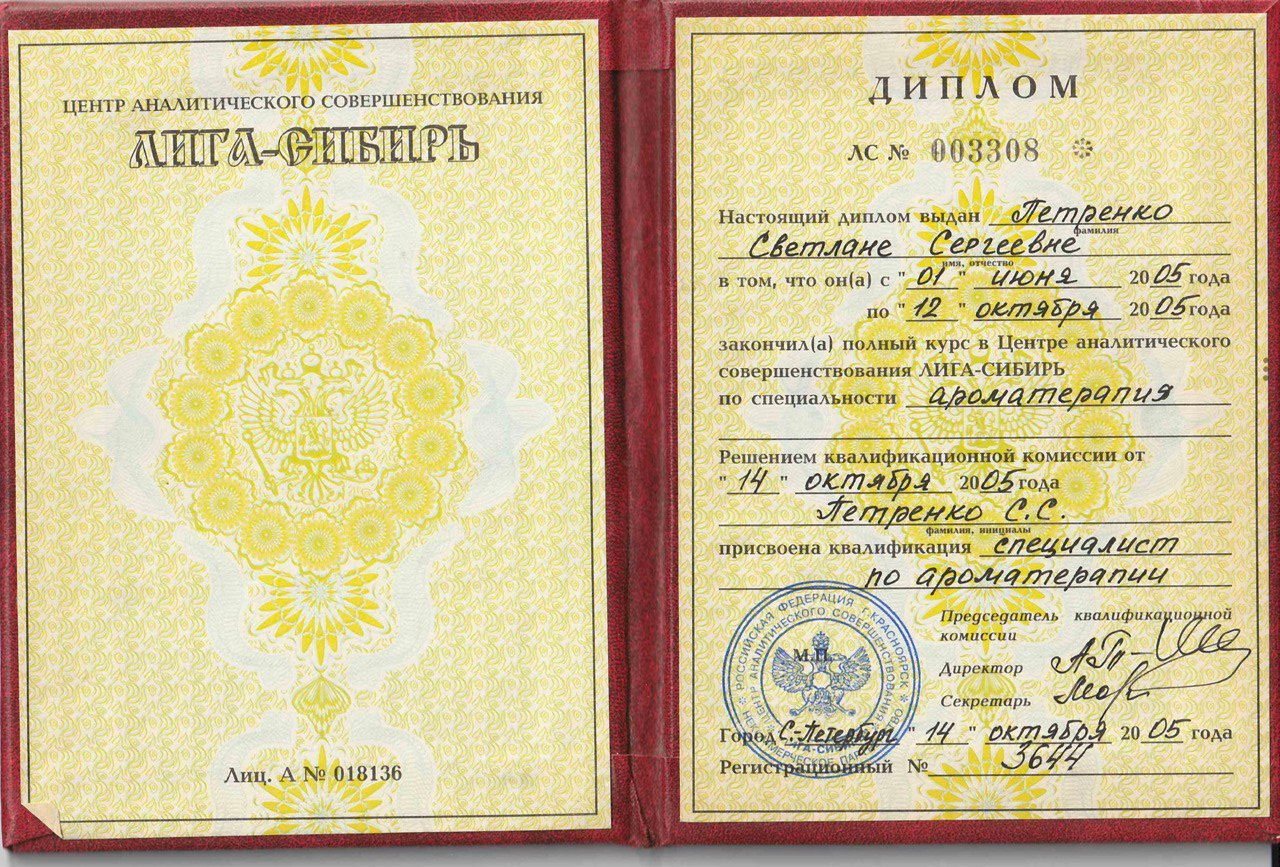 ЦЕНТР АНАЛИТИЧЕСКОГО СОВЕРШЕНСТВОВАНИЯ
ЛИГА-СИБИРЬ
Лиц. А № 018136
ДИПЛОМ
ЛС № 003308
Настоящий диплом выдан Петренко
фамилия
Светлане Сергеевне
имя, отчество
в том, что он(а) с "01" июня 2005 года
по "12" октября 2005 года
закончил(а) полный курс в Центре аналитического
совершенствования ЛИГА-СИБИРЬ
по специальности ароматерапия
Решением квалификационной комиссии от
"14" октября 2005 года
Петренко С.С.
фамилия, инициалы
присвоена квалификация специалист
по ароматерапии
Председатель квалификационной
комиссии
Директор
Секретарь
М.П.
РОССИЙСКАЯ ФЕДЕРАЦИЯ г. КРАСНОЯРСК
НЕКОММЕРЧЕСКОЕ ПАРТНЕРСТВО
ЦЕНТР АНАЛИТИЧЕСКОГО СОВЕРШЕНСТВОВАНИЯ
ЛИГА-СИБИРЬ
Город С.-Петербург "14" октября 2005 года
Регистрационный № 3644